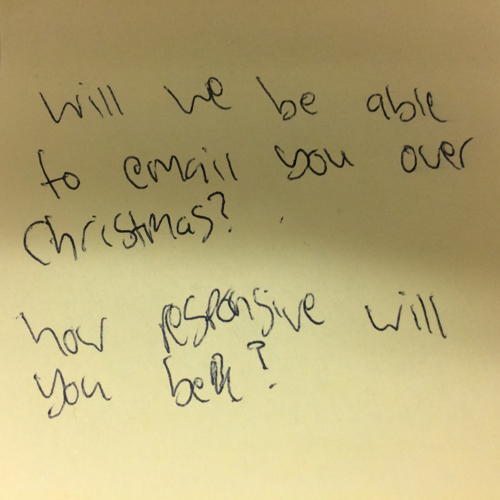 will we be able
to email you over
Christmas?
how responsive will
you be?